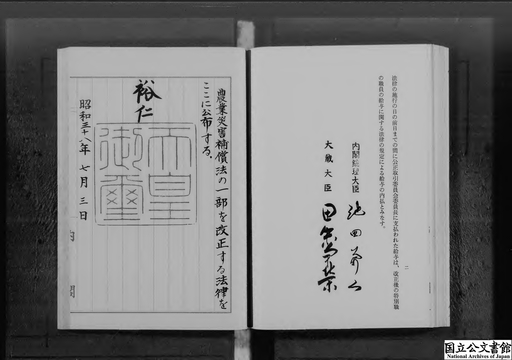 法律の施行の日の前日までの間に公正取引委員会委員長に支払われた給与は、改正後の特別職
の職員の給与に関する法律の規定による給与の内払とみなす。
二
内閣総理大臣
池田勇人
大蔵大臣
田中角榮
農業災害補償法の一部を改正する法律を
ここに公布する。
裕仁
天皇
御璽
昭和三十八年七月三日
国立公文書館
National Archives of Japan